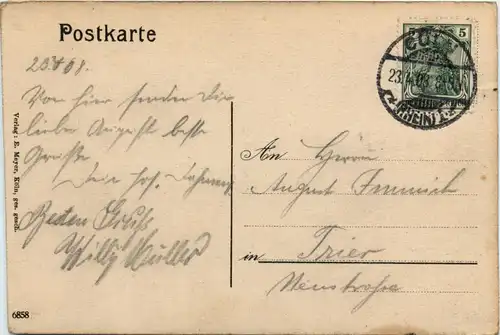 Postkarte
5
CÖLN
23.4.08
(RHEIN)
23 4 08.
Von hier senden Dir
lieber August beste
Grüsse.
Dein
Besten Gruß
Willy Müller
Verlag: E. Meyer, Köln, ges. gesch.
6858
An Herrn
August
in Trier